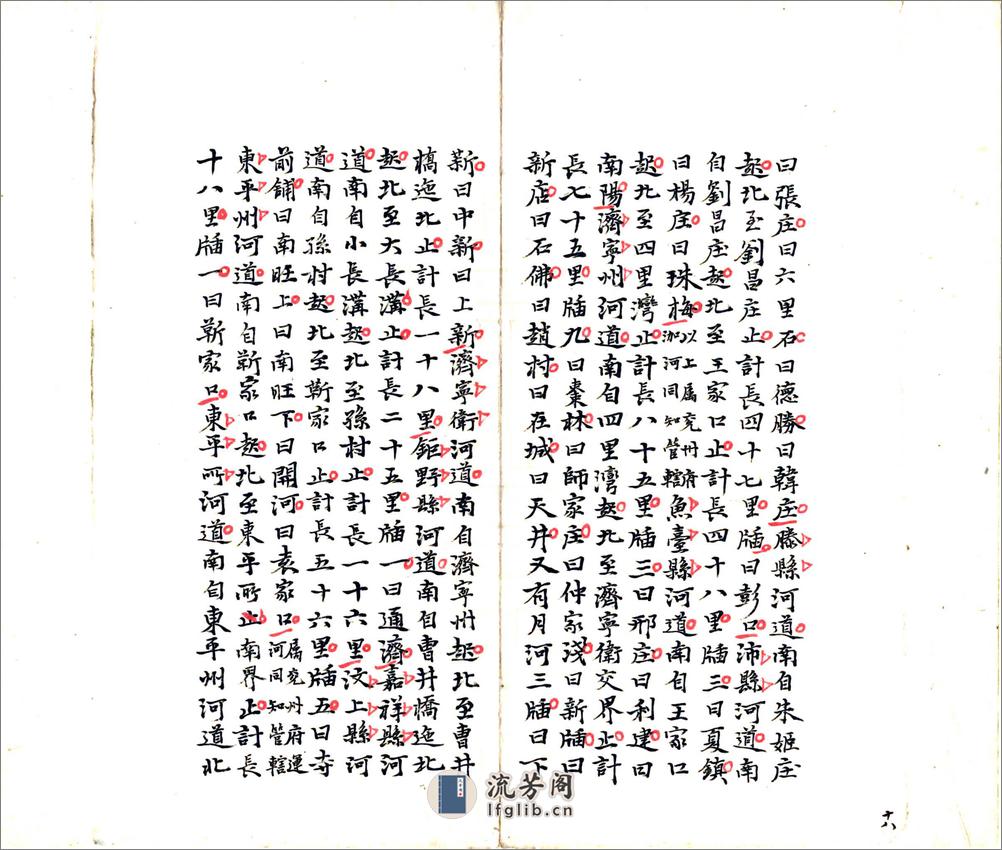 曰張庄曰六里石曰德勝曰韓庄滕縣河道南自朱姬庄
起北至劉昌庄止計長四十七里牐一曰彭口沛縣河道南
自劉昌庄起北至王家口止計長四十八里牐三曰夏鎮
曰楊庄曰珠梅以上属兖州府泇河同知管轄魚臺縣河道南自王家口
起北至四里灣止計長八十五里牐三曰邢庄曰利建曰
南陽濟寧州河道南自四里灣起北至濟寧衛交界止計
長七十五里牐九曰棗林曰師家庄曰仲家淺曰新牐曰
新店曰石佛曰趙村曰在城曰天井又有月河三牐曰下
新曰中新曰上新濟寧衛河道南自濟寧州起北至曹井
橋迤北止計長一十八里鉅野縣河道南自曹井橋迤北
起北至大長溝止計長二十五里牐一曰通濟嘉祥縣河
道南自小長溝起北至孫村止計長一十六里汶上縣河
道南自孫村起北至靳家口止計長五十六里牐五曰寺
前鋪曰南旺上曰南旺下曰開河曰袁家口属兖州府運河同知管轄
東平州河道南自靳家口起北至東平所止南界止計長
十八里牐一曰靳家口東平所河道南自東平州河道北
十八
流芳阁
lfglib.cn